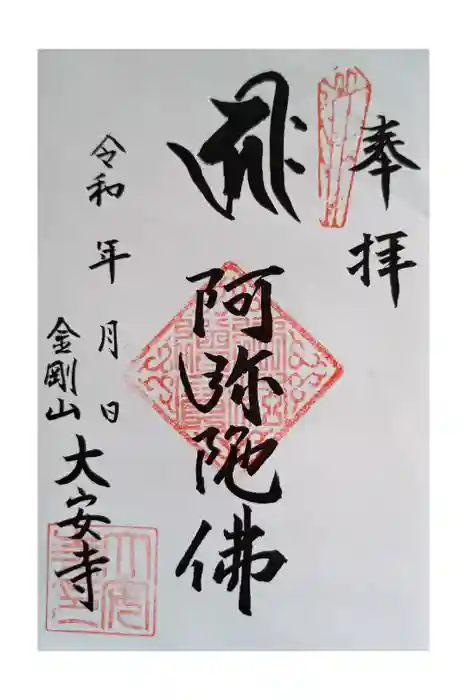 奉拝
阿弥陀佛
令和 年 月 日
金剛山 大安寺